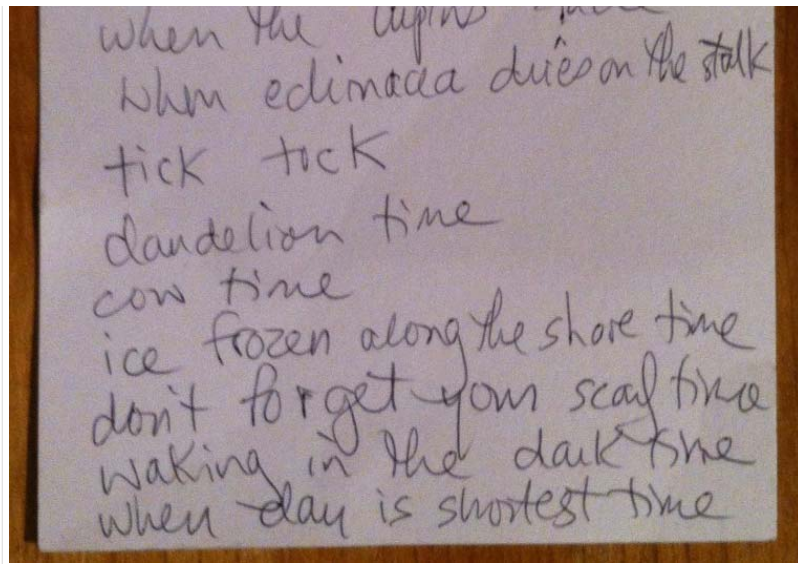 when the lupins
when edimacea dries on the stalk
tick tock
dandelion time
cow time
ice frozen along the shore time
don't forget your scarf time
waking in the dark time
when day is shortest time